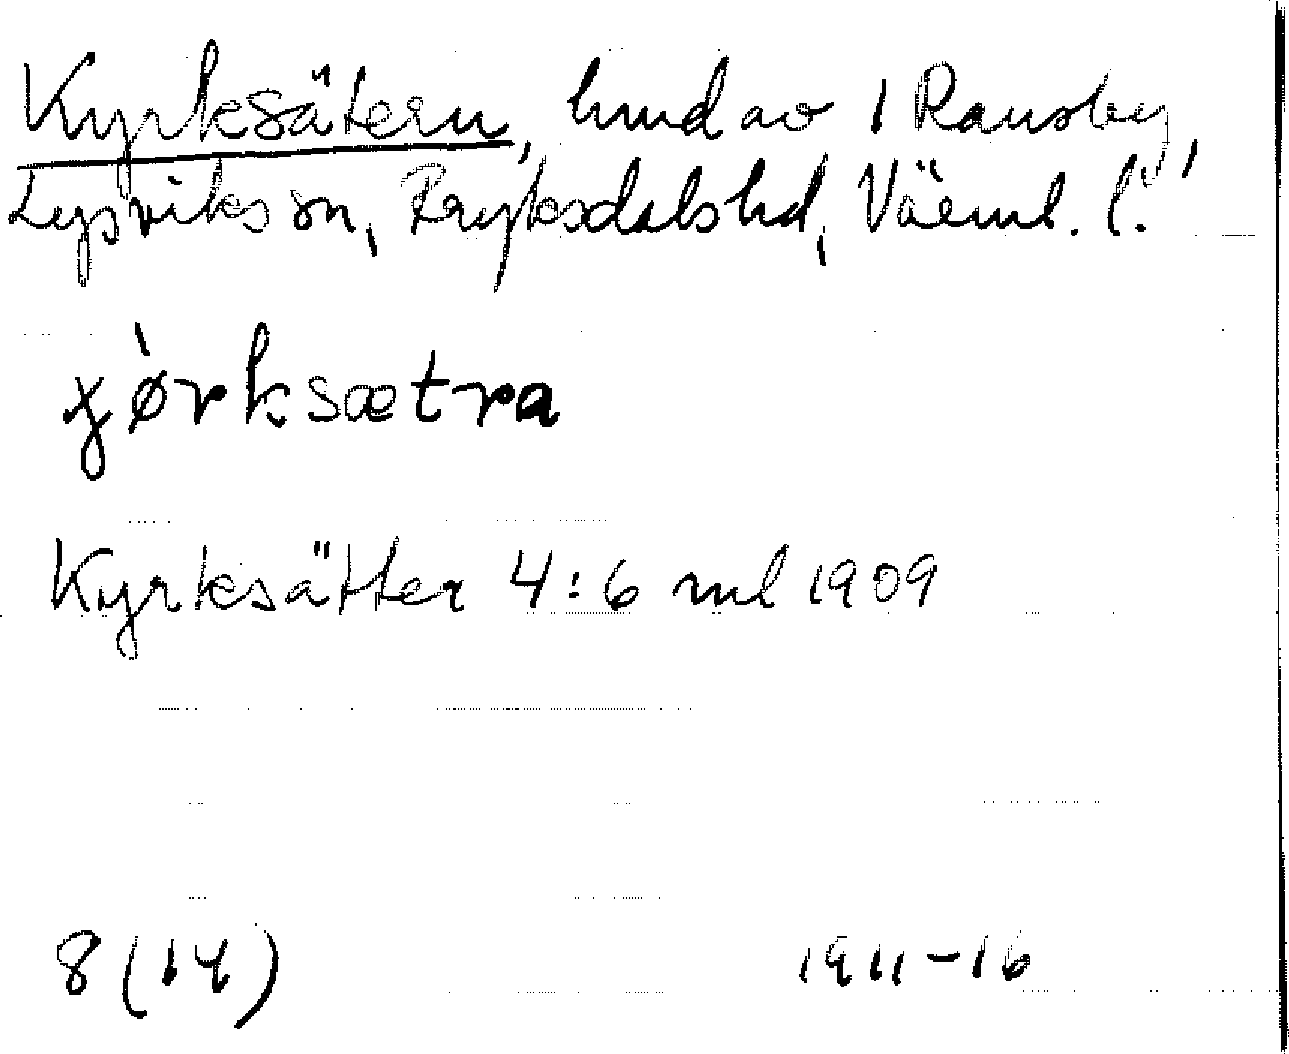 Kyrksätern, hmd av 1 Ransby,
Lysviks sn, Fryksdals hd, Värml. l.
kyrksætra
Kyrksätter 4:6 ml 1909
8 (14) 1911-16